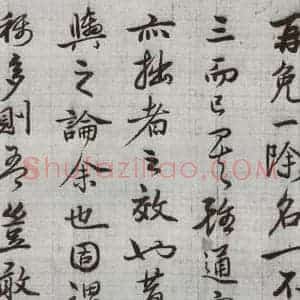 再免一除名一不
三而已矣雖通
亦拙者之效也昔
輿之論余也固謂
稱多則吾豈敢
Shufaziliao.COM